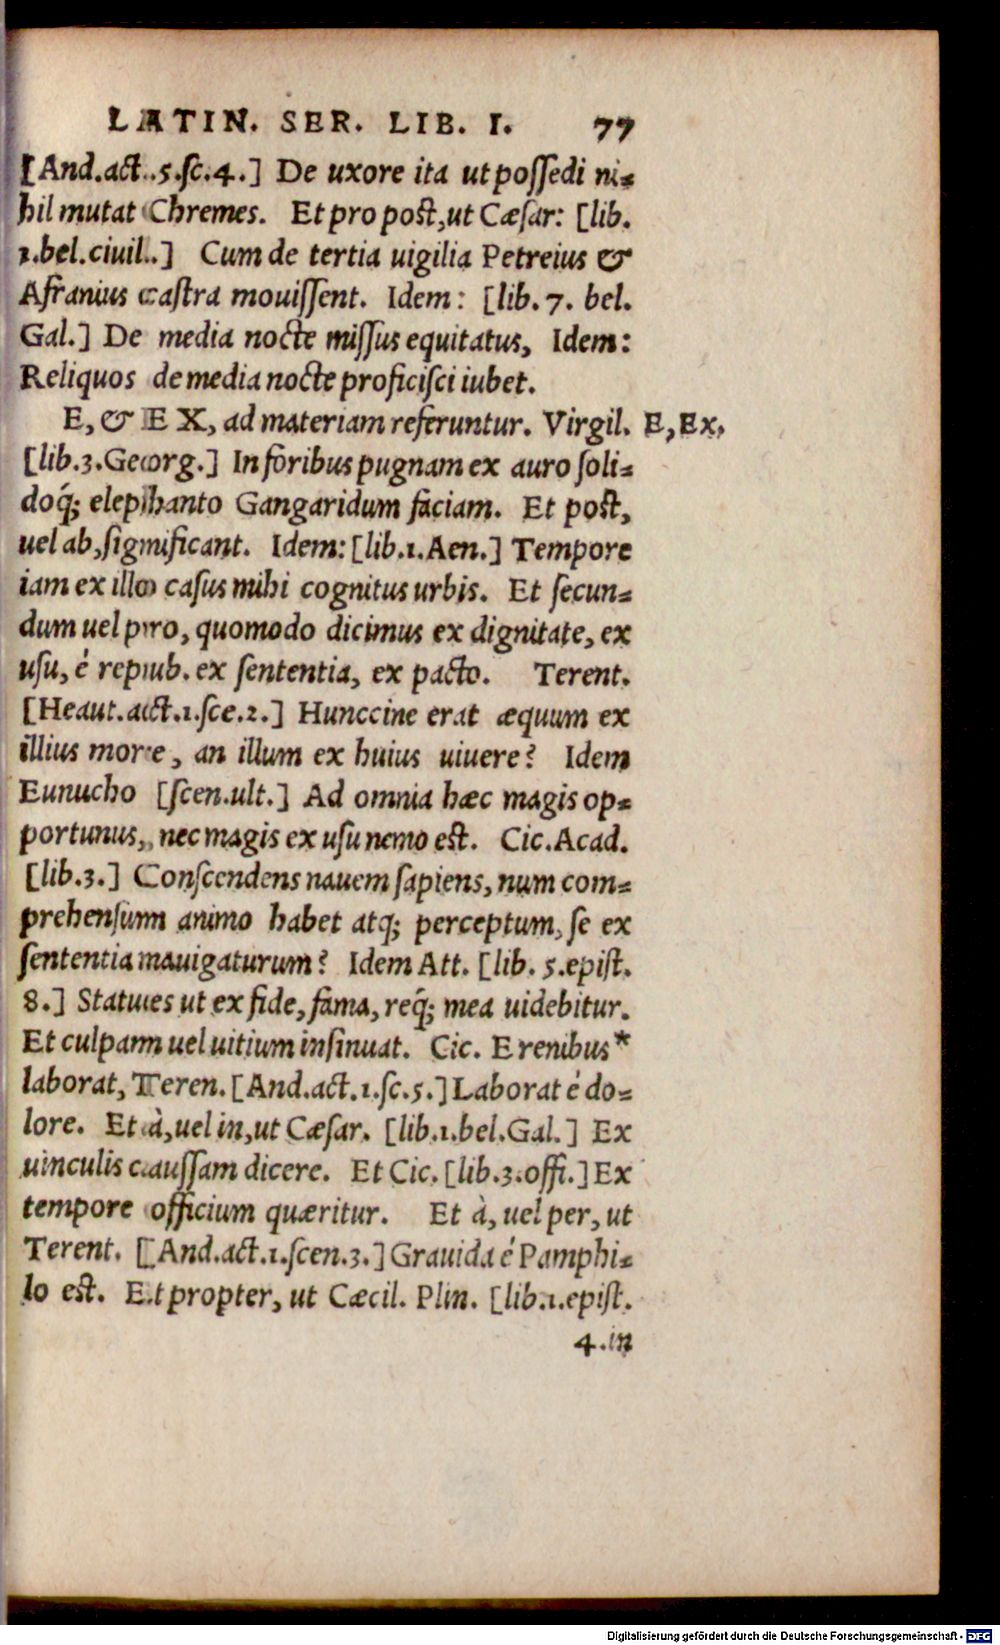 LATIN. SER. LIB. I. 77
[And.act.5.sc.4.] De uxore ita ut possedi ni-
hil mutat Chremes. Et pro post, ut Cæsar: [lib.
1.bel.ciuil.] Cum de tertia uigilia Petreius &
Afranius castra mouissent. Idem: [lib. 7. bel.
Gal.] De media nocte missus equitatus, Idem:
Reliquos de media nocte proficisci iubet.
E, & EX, ad materiam referuntur. Virgil. E, Ex,
[lib.3.Georg.] In foribus pugnam ex auro soli-
doq́; elephanto Gangaridum faciam. Et post,
uel ab, significant. Idem: [lib.1.Aen.] Tempore
iam ex illo casus mihi cognitus urbis. Et secun-
dum uel pro, quomodo dicimus ex dignitate, ex
usu, é repub. ex sententia, ex pacto. Terent.
[Heaut.act.1.sce.2.] Hunccine erat æquum ex
illius more, an illum ex huius uiuere? Idem
Eunucho [scen.ult.] Ad omnia hæc magis op-
portunus, nec magis ex usu nemo est. Cic. Acad.
[lib.3.] Conscendens nauem sapiens, num com-
prehensum animo habet atq; perceptum, se ex
sententia nauigaturum? Idem Att. [lib. 5.epist.
8.] Statues ut ex fide, fama, req́; mea uidebitur.
Et culpam uel uitium insinuat. Cic. E renibus*
laborat, Teren. [And.act.1.sc.5.] Laborat é do-
lore. Et à, uel in, ut Cæsar. [lib.1.bel.Gal.] Ex
uinculis caussam dicere. Et Cic. [lib.3.offi.] Ex
tempore officium quæritur. Et à, uel per, ut
Terent. [And.act.1.scen.3.] Grauida é Pamphi-
lo est. Et propter, ut Cæcil. Plin. [lib.1.epist.
4.in
Digitalisierung gefördert durch die Deutsche Forschungsgemeinschaft - DFG